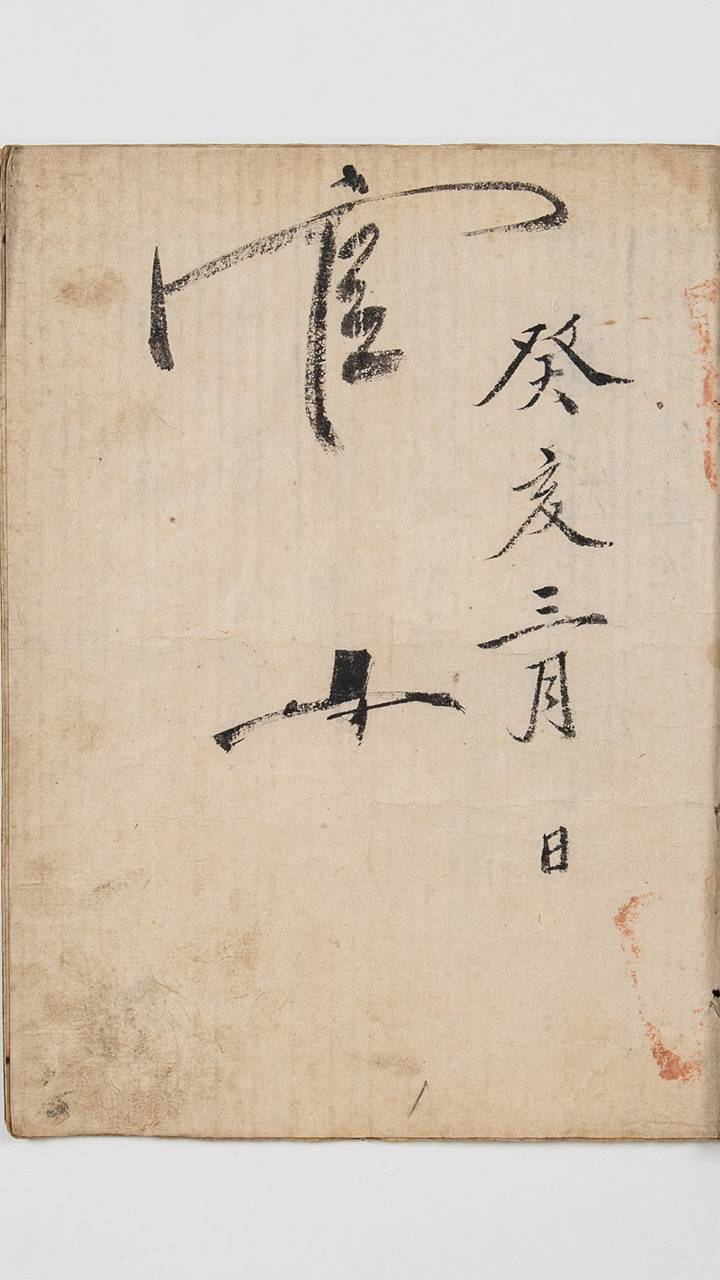 癸亥三月 日
官